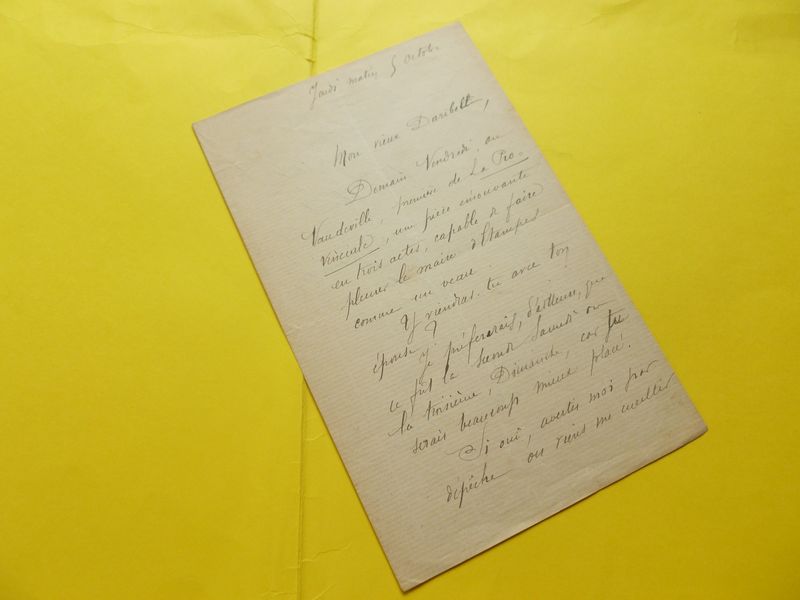 Jeudi matin 5 Octobre
Mon vieux Daribelt,
Demain Vendredi, au
Vaudeville, première de La Pro-
vinciale, une pièce émouvante
en trois actes, capable de faire
pleurer le maire d'Etampes
comme un veau
Y viendras-tu avec ton
épouse?
Je préfèrerais, d'ailleurs, que
ce fût la seconde Samedi ou
la troisième, Dimanche, car tu
serais beaucoup mieux placé.
Si oui, avertis moi par
dépêche ou viens me cueillir